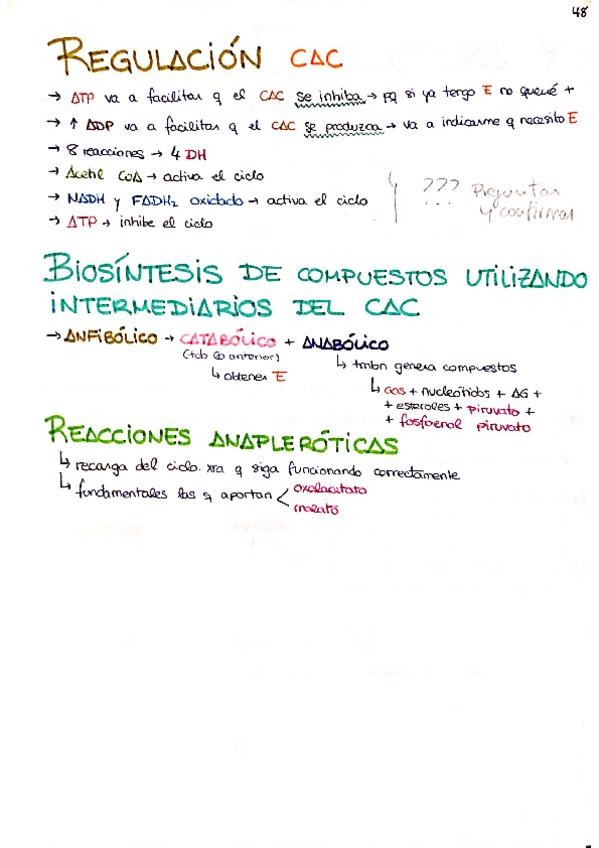 48
REGULACIÓN CAC
→ ATP va a facilitar q el CAC se inhiba → pq si ya tengo E no querré +
→ ↑ ADP va a facilitar q el CAC se produzca → va a indicarme q necesito E
→ 8 reacciones → 4 DH
→ Acetil CoA → activa el ciclo
→ NADH y FADH₂ oxidado → activa el ciclo
→ ATP → inhibe el ciclo
??? Preguntar
y confirmar
BIOSÍNTESIS DE COMPUESTOS UTILIZANDO
INTERMEDIARIOS DEL CAC
→ ANFIBÓLICO → CATABÓLICO + ANABÓLICO
(tdo lo anterior)
↳ tmbn genera compuestos
↳ obtener E
↳ aas + nucleótidos + AG +
+ esteroles + piruvato +
+ fosfoenol piruvato
REACCIONES ANAPLERÓTICAS
↳ recarga del ciclo xra q siga funcionando correctamente
↳ fundamentales las q aportan < oxalacetato
malato